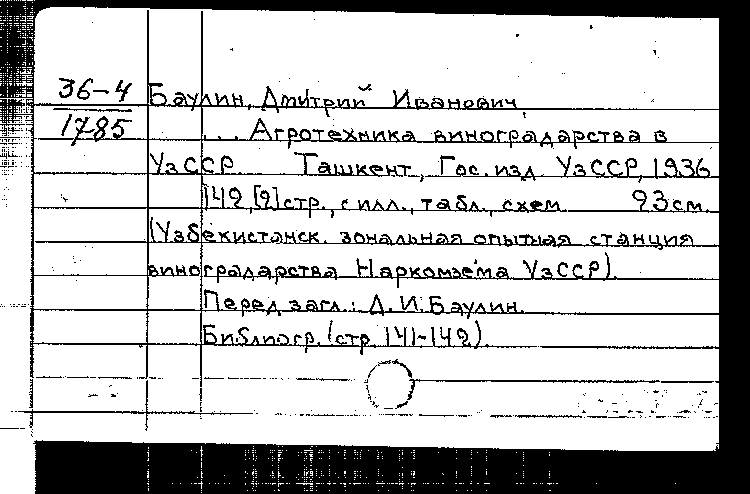 36-4
1785
Баулин, Дмитрий Иванович,
... Агротехника виноградарства в
УзССР. Ташкент, Гос. изд. УзССР, 1936
142, [2] стр., с илл., табл., схем. 23 см.
(Узбекистанск. зональная опытная станция
виноградарства Наркомзема УзССР).
Перед загл.: Д. И. Баулин.
Библиогр. (стр. 141-142).